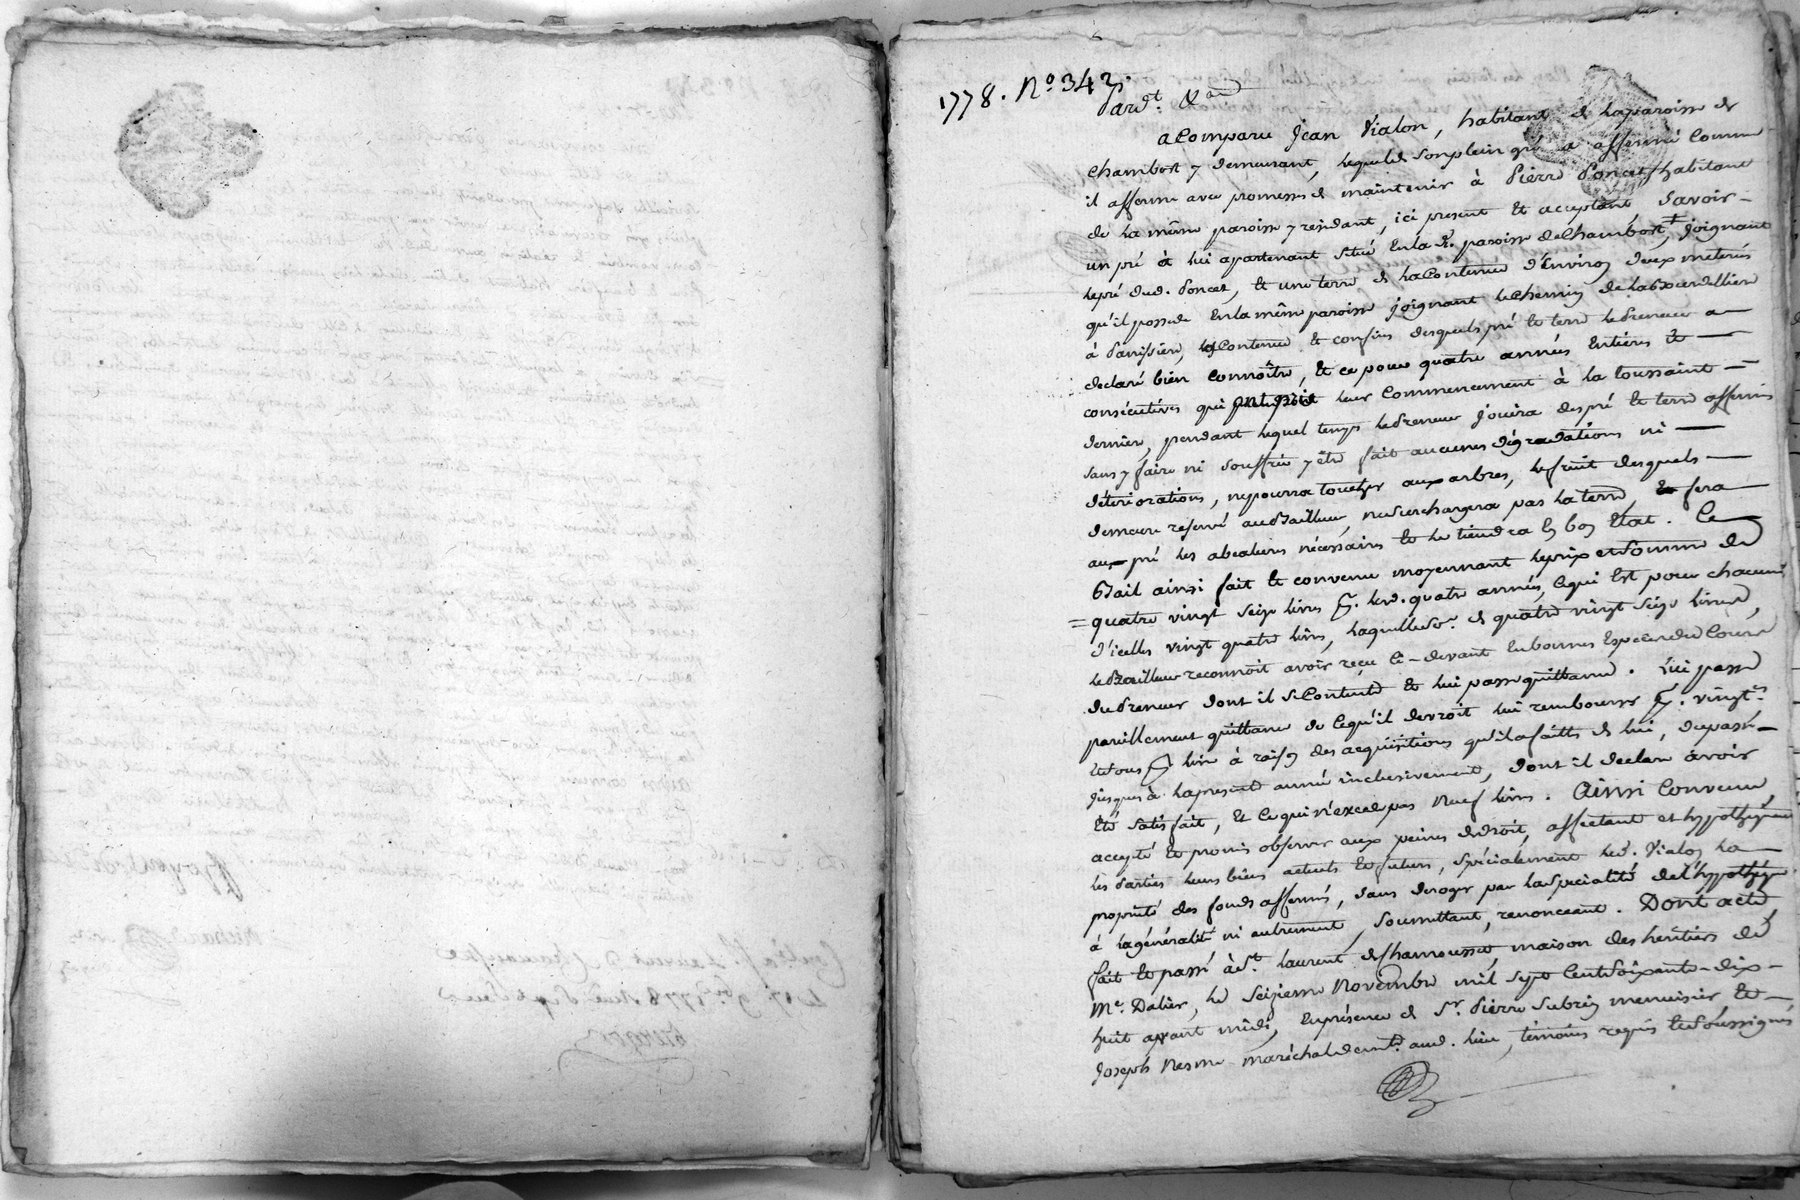 1778. N.o 342.
Pard.t &a
a Comparu Jean Vialon, habitant de la paroisse de
Chambost y demeurant, lequel de son plein gré a affermé comme
il afferme avec promesse de maintenir à Pierre Poncet, habitant
de la même paroisse y résidant, ici présent et acceptant Savoir -
un pré à lui apartenant situé en la d. paroisse de Chambost, joignant
le pré dud. Poncet, et une terre de la Contenue d'Environ deux meterés
qu'il possede en la même paroisse joignant le chemin de la
à Panissiere, Contenue et confins desquels pré et terre le Preneur a
declaré bien connoître, et ce pour quatre années Entieres et
consécutives qui ont pris leur Commencement à la toussaint
dernier, pendant lequel temps le Preneur jouira des pré et terre affermés
sans y faire ni souffrir y être fait aucunes dégradations ni
détériorations, ne pourra toucher aux arbres, le fruit desquels
demeure reservé au Bailleur, ne surchargera pas la terre, fera
au pré les abealieres nécessaires et le tiendra en bon Etat. Ce
Bail ainsi fait et convenu moyennant le prix et somme de
= quatre vingt seize livres p. lesd. quatre années, ce qui Est pour chacune
d'icelles vingt quatre livres, laquelle de. de quatre vingt seize livres,
le Bailleur reconnoit avoir reçu ci-devant en bonnes Especes du Cours
du Preneur dont il se Contente et lui passe quittance. Lui passe
pareillement quittance de ce qu'il devroit lui rembourser p. vingt.
et sous p. livre à raison des acquisitions qu'il a faittes de lui, du passé
jusques à la présente année inclusivement, dont il declare avoir
Eté satisfait, et ce qui n'excede pas Neuf livres. Ainsi Convenu,
accepté et promis observer aux peines de droit, affectant et hypothéquant
les Parties leurs biens actuels et futurs, spécialement led. Vialon la
propriété des fonds affermés, sans deroger par la Spécialité de l'hypothéque
à la généralité ni autrement, soumettant, renonceant. Dont acte,
fait et passé à St. Laurent de Chamousset, maison des heritiers de
Me. Dalier, le seizieme Novembre mil sept Cent Soixante-dix-
huit avant midi, En présence de Sr. Pierre Subrin menuisier et
Joseph Nesme maréchal demt. aud. lieu, témoins requis et soussignés